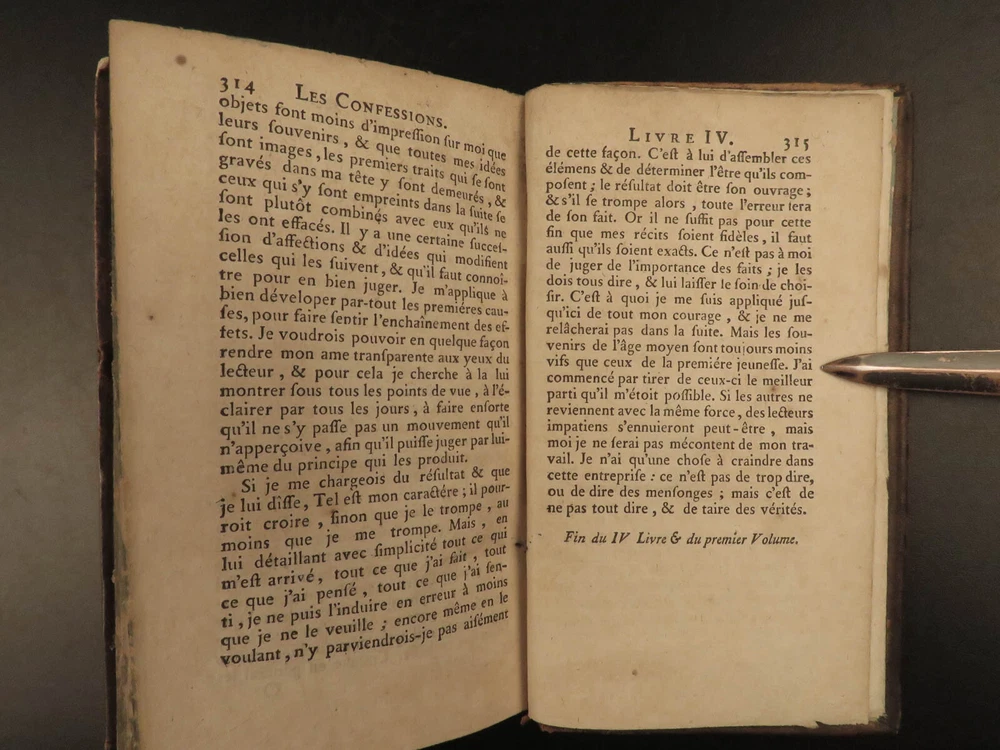 314 LES CONFESSIONS.
objets font moins d'impreſſion ſur moi que
leurs ſouvenirs, & que toutes mes idées
ſont images, les premiers traits qui ſe ſont
gravés dans ma tête y ſont demeurés, &
ceux qui s'y ſont empreints dans la ſuite ſe
ſont plutôt combinés avec eux qu'ils ne
les ont effacés. Il y a une certaine ſucceſ-
ſion d'affections & d'idées qui modifient
celles qui les ſuivent, & qu'il faut connoî-
tre pour en bien juger. Je m'applique à
bien déveloper par-tout les premiéres cau-
ſes, pour faire ſentir l'enchaînement des ef-
fets. Je voudrois pouvoir en quelque façon
rendre mon ame tranſparente aux yeux du
lecteur, & pour cela je cherche à la lui
montrer ſous tous les points de vue, à l'é-
clairer par tous les jours, à faire enſorte
qu'il ne s'y paſſe pas un mouvement qu'il
n'apperçoive, afin qu'il puiſſe juger par lui-
même du principe qui les produit.
Si je me chargeois du réſultat & que
je lui diſſe, Tel eſt mon caractére; il pour-
roit croire, ſinon que je le trompe, au
moins que je me trompe. Mais, en
lui détaillant avec ſimplicité tout ce qui
m'eſt arrivé, tout ce que j'ai fait, tout
ce que j'ai penſé, tout ce que j'ai ſen-
ti, je ne puis l'induire en erreur à moins
que je ne le veuille; encore même en le
voulant, n'y parviendrois-je pas aiſément
LIVRE IV. 315
de cette façon. C'eſt à lui d'aſſembler ces
élémens & de déterminer l'être qu'ils com-
poſent; le réſultat doit être ſon ouvrage;
& s'il ſe trompe alors, toute l'erreur ſera
de ſon fait. Or il ne ſuffit pas pour cette
fin que mes récits ſoient fidèles, il faut
auſſi qu'ils ſoient exacts. Ce n'eſt pas à moi
de juger de l'importance des faits; je les
dois tous dire, & lui laiſſer le ſoin de choi-
ſir. C'eſt à quoi je me ſuis appliqué juſ-
qu'ici de tout mon courage, & je ne me
relâcherai pas dans la ſuite. Mais les ſou-
venirs de l'âge moyen ſont toujours moins
vifs que ceux de la premiére jeuneſſe. J'ai
commencé par tirer de ceux-ci le meilleur
parti qu'il m'étoit poſſible. Si les autres ne
reviennent avec la même force, des lecteurs
impatiens s'ennuieront peut-être, mais
moi je ne ſerai pas mécontent de mon tra-
vail. Je n'ai qu'une choſe à craindre dans
cette entrepriſe: ce n'eſt pas de trop dire,
ou de dire des menſonges; mais c'eſt de
ne pas tout dire, & de taire des vérités.
Fin du IV Livre & du premier Volume.